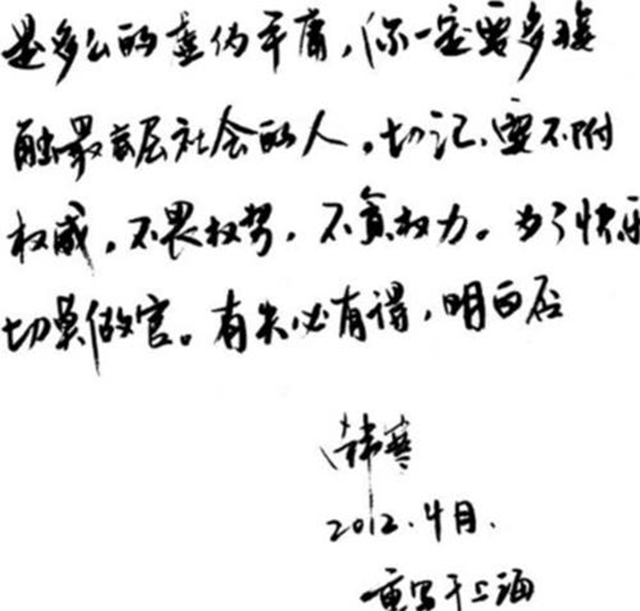 是多么的虚伪平庸,你一定要多接
触最底层社会的人。切记,要不附
权威,不畏权势,不贪权力。为了快乐
切莫做官。有失必有得,明白否
韩寒
2012.4月.
重写于上海